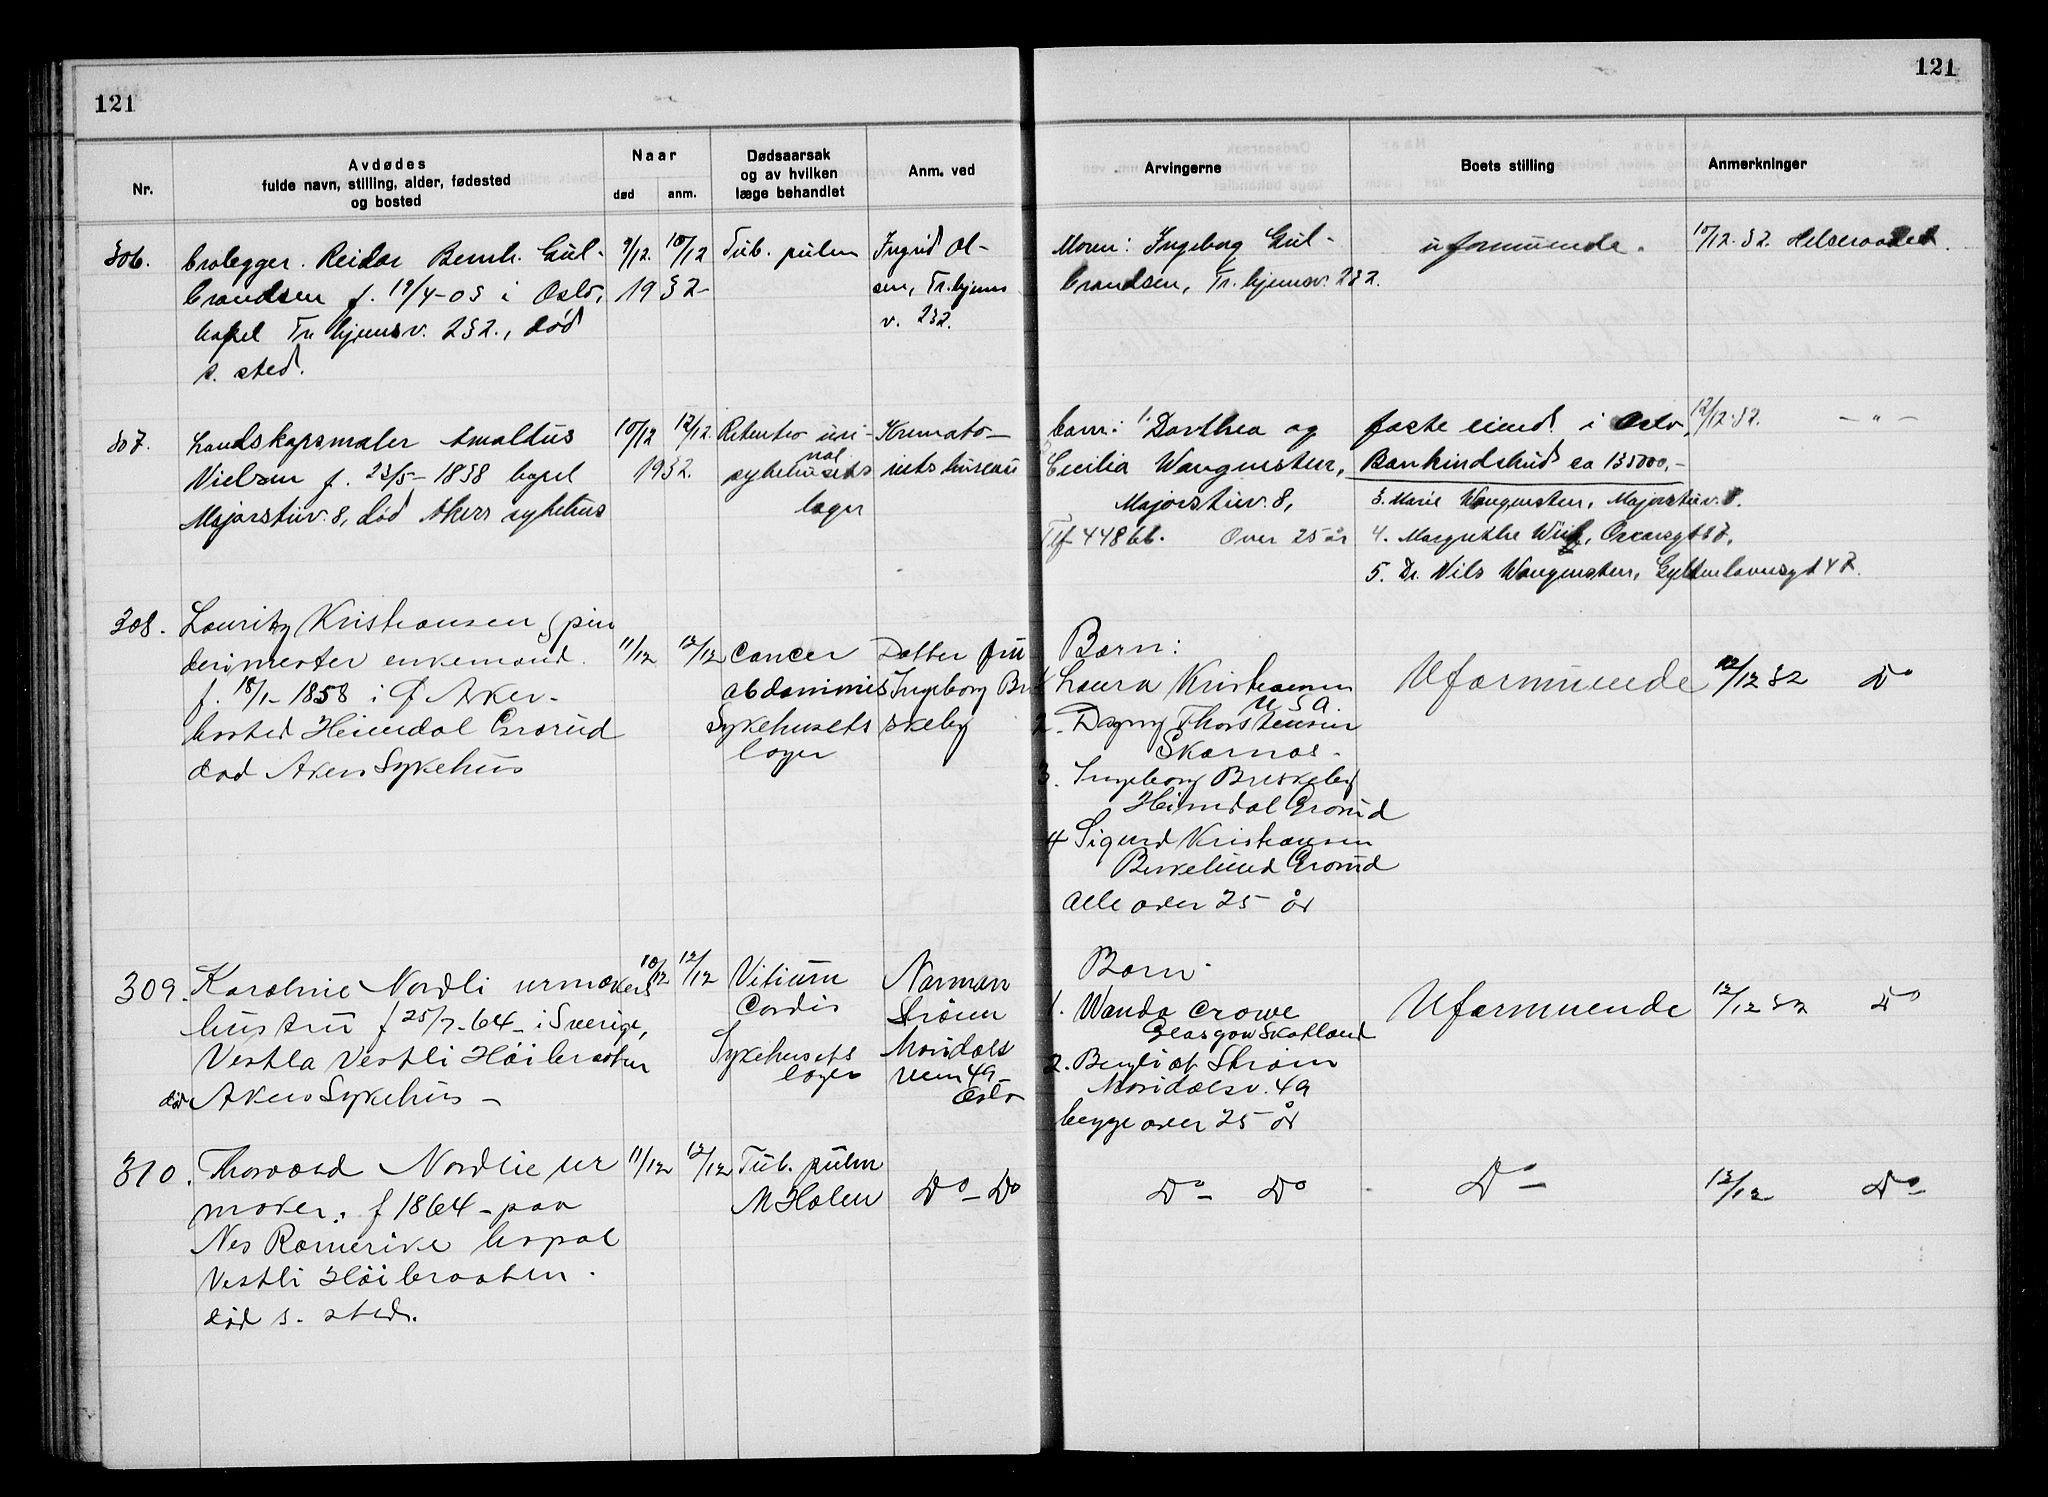 121
121
Nr.
Avdødes
fulde navn, stilling, alder, fødested
og bosted
Naar
død
anm.
Dødsaarsak
og av hvilken
læge behandlet
Anm. ved
Arvingerne
Boets stilling
Anmerkninger
306.
brolegger. Reidar Bernh. Gul-
brandsen f. 19/4-03 i Oslo,
bopel Tr.hjemsv. 232., død
s. sted.
9/12. 10/12
1932
Tub. pulm
Ingrid Ol-
sen, Tr.hjems
v. 232.
Moren: Ingeborg Gul-
brandsen, Tr.hjemsv. 232.
uformuende.
10/12-32. Helseraadet.
307.
Landskapsmaler Amaldus
Nielsen f. 23/5-1838 bopel
Majorstuv. 8, død Akers sykehus
10/12 12/12.
1932.
Retentio uri-
nal
sykehusets
læger
Kremato-
riets bureau
barn: 1. Dorthea og
Cecilia Wangensten,
Majorstuv. 8,
Tlf 44866. Over 25 år
faste eiend. i Oslo,
Bankindskud ca 135000,-
3. Marie Wangensten, Majorstuv. 8.
4. Margrethe Wiig, Oscarsgt 87.
5. Dr. Nils Wangensten, Gyldenløvesgt 47.
12/12-32. - " -
308.
Lauritz Kristiansen Spin
derimester enkemand.
f. 18/1-1858 i Ø Aker-
bosted Heimdal Grorud
død Akers Sykehus
11/12 12/12
Cancer
abdominis
Sykehusets
læger
Datter fru
Ingeborg Br
skeby
Barn:
1 Laura Kristiansen
U S A.
2. Dagny Thorstensen
Skarnes-
3. Ingeborg Breskeby
Heimdal Grorud
4 Sigurd Kristiansen
Birkelund Grorud
Alle over 25 år
Uformuende
12/12 32 Do
309.
Karoline Nordli urmakers
hustru f 25/7-64- i Sverige,
Vestla Vestli Høibraaten
død Akers Sykehus -
10/12 12/12
Vitium
Cordis
Sykehusets
læger
Norman
Strøm
Maridals
veien 49
Oslo
Barn-
1. Wanda Crowe
Glasgow Skotland
2. Bergliot Strøm
Maridalsv. 49
begge over 25 år
Uformuende
12/12 32 Do
310.
Thorvald Nordlie ur
maker. f 1864 - paa
Nes Romerike bopæl
Vestli Høibraaten.
død s. sted.
11/12 12/12
Tub. pulm
M Holen
Do - Do
Do - Do
Do -
12/12 Do